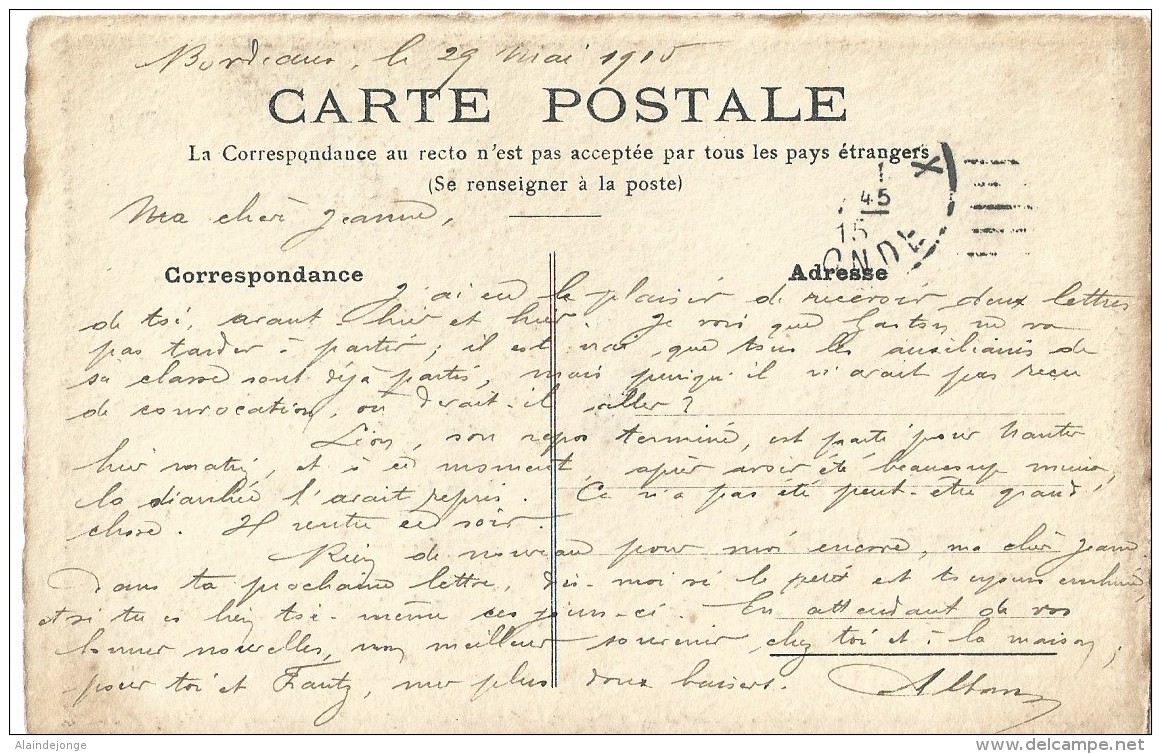 Bordeaux, le 29 mai 1915
CARTE POSTALE
La Correspondance au recto n'est pas acceptée par tous les pays étrangers
(Se renseigner à la poste)
45
15
ONDE
Ma chère Jeanne,
Correspondance
Adresse
J'ai eu le plaisir de recevoir deux lettres
de toi, avant-hier et hier. Je vois que Gaston ne va
pas tarder à partir ; il est vrai que tous les auxiliaires de
sa classe sont déjà partis, mais puisqu'il n'avait pas reçu
de convocation, où devait-il aller ?
Léon, son repos terminé, est parti pour Nantes
hier matin, et à ce moment, après avoir été beaucoup mieux,
la diarrhée l'avait repris. Ce n'a pas été peut-être grand'
chose. Il rentre ce soir.
Rien de nouveau pour moi encore, ma chère Jeanne.
Dans ta prochaine lettre, dis-moi si le petit est toujours enrhumé,
et si tu es bien toi-même ces jours-ci. En attendant de vos
bonnes nouvelles, mon meilleur souvenir chez toi et à la maison ;
pour toi et mes plus doux baisers.
Alban
Alaindejonge
www.delcampe.net